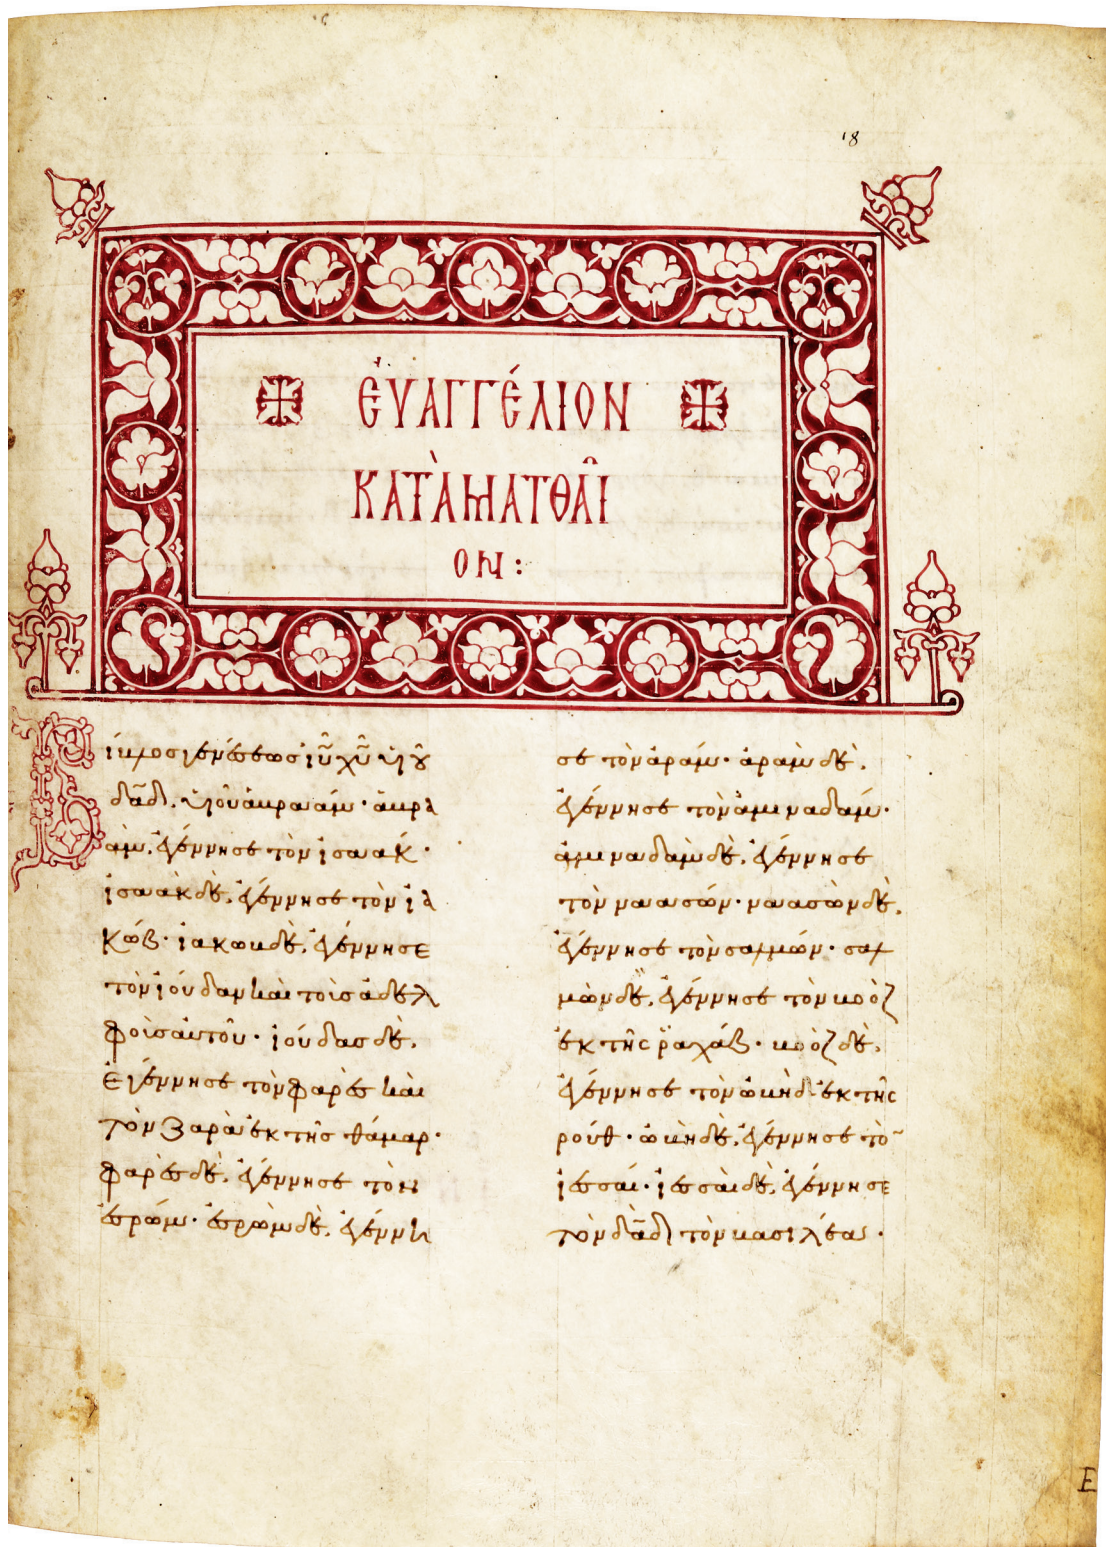 18
ἐυαγγέλιον
κατὰ ματθαῖ
ον:
Βίβλος γενέσεως ἰῦ χῦ ὑιοῦ
δᾶδ, ὑιοῦ ἀβραάμ· ἀβρα
ὰμ, ἐγέννησε τὸν ἰσαάκ·
ἰσαὰκ δὲ, ἐγέννησε τὸν ἰα
κώβ· ἰακὼβ δὲ, ἐγέννησε
τὸν ἰούδαν καὶ τοὺσ ἀδελ
φοὺσ ἀυτοῦ· ἰούδασ δὲ,
ἐγέννησε τὸν φαρὲσ καὶ
τὸν ζαρὰ ἐκ τῆσ θάμαρ·
φαρὲσ δὲ, ἐγέννησε τὸν
ἐσρώμ· ἐσρὼμ δὲ, ἐγέννη
σε τὸν ἀράμ· ἀρὰμ δὲ,
ἐγέννησε τὸν ἀμιναδάμ·
ἀμιναδὰμ δὲ, ἐγέννησε
τὸν ναασών· ναασὼν δὲ,
ἐγέννησε τὸν σαλμών· σαλ
μὼν δὲ, ἐγέννησε τὸν βοὸζ
ἐκ τῆς ῥαχάβ· βοὸζ δὲ,
ἐγέννησε τὸν ὠβὴδ ἐκ τῆς
ρούθ· ὠβὴδ δὲ, ἐγέννησε τὸ
ἰεσσαί· ἰεσσαὶ δὲ, ἐγέννησε
τὸν δᾶδ τὸν βασιλέα·
E